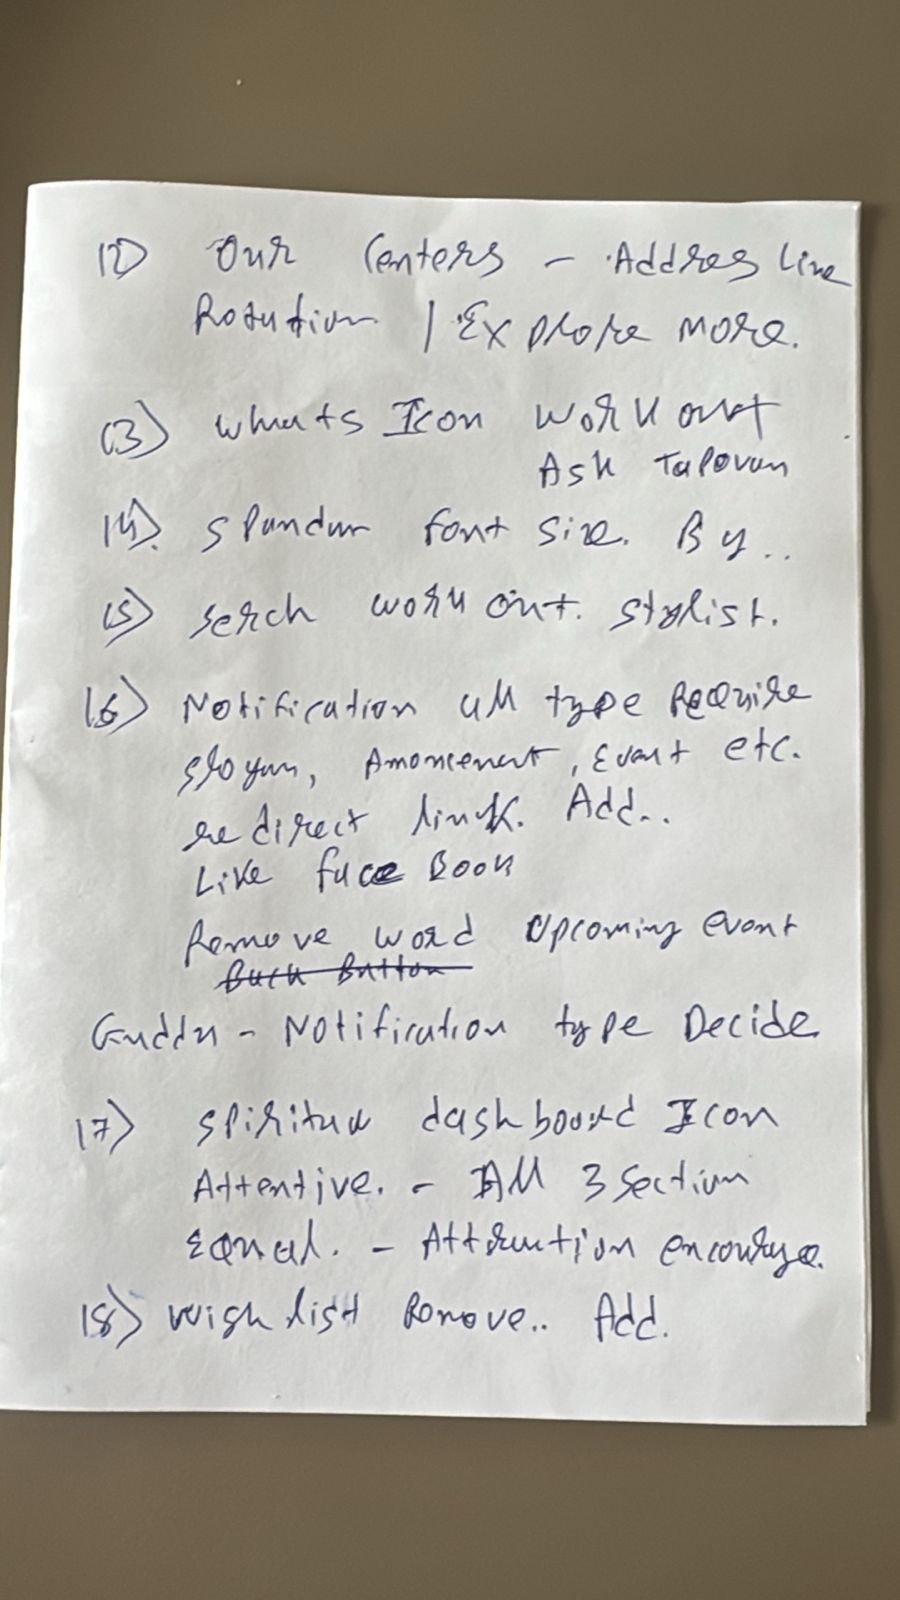 12) Our Centers - Addres Line
Rotution | Explore more.
13) Whats Icon work out
Ask Tapovan
14) Spandan font size. By..
15) Serch work out. stylist.
16) Notification all type Require
slogan, Amoncement, Event etc.
redirect link. Add..
Like face Book
Remove word Upcoming event
Back Button
Guddu - Notification type Decide
17) Spiritual dashboard Icon
Attentive. - All 3 Section
Equal. - Attraction encourge.
18) Wish list Remove.. Add.